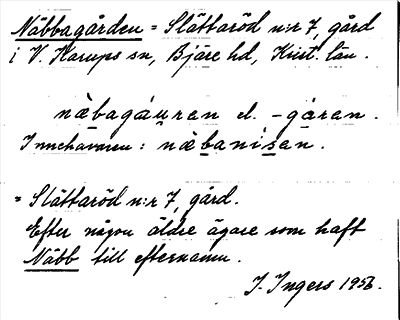 Näbbagården = Slättaröd n:r 7, gård
i V. Karups sn, Bjäre hd, Krist. län.
näbagáuren el. -gåren.
Innehavaren: näbanisen.
= Slättaröd n:r 7, gård.
Efter någon äldre ägare som haft
Näbb till efternamn.
I. Ingers 1956.